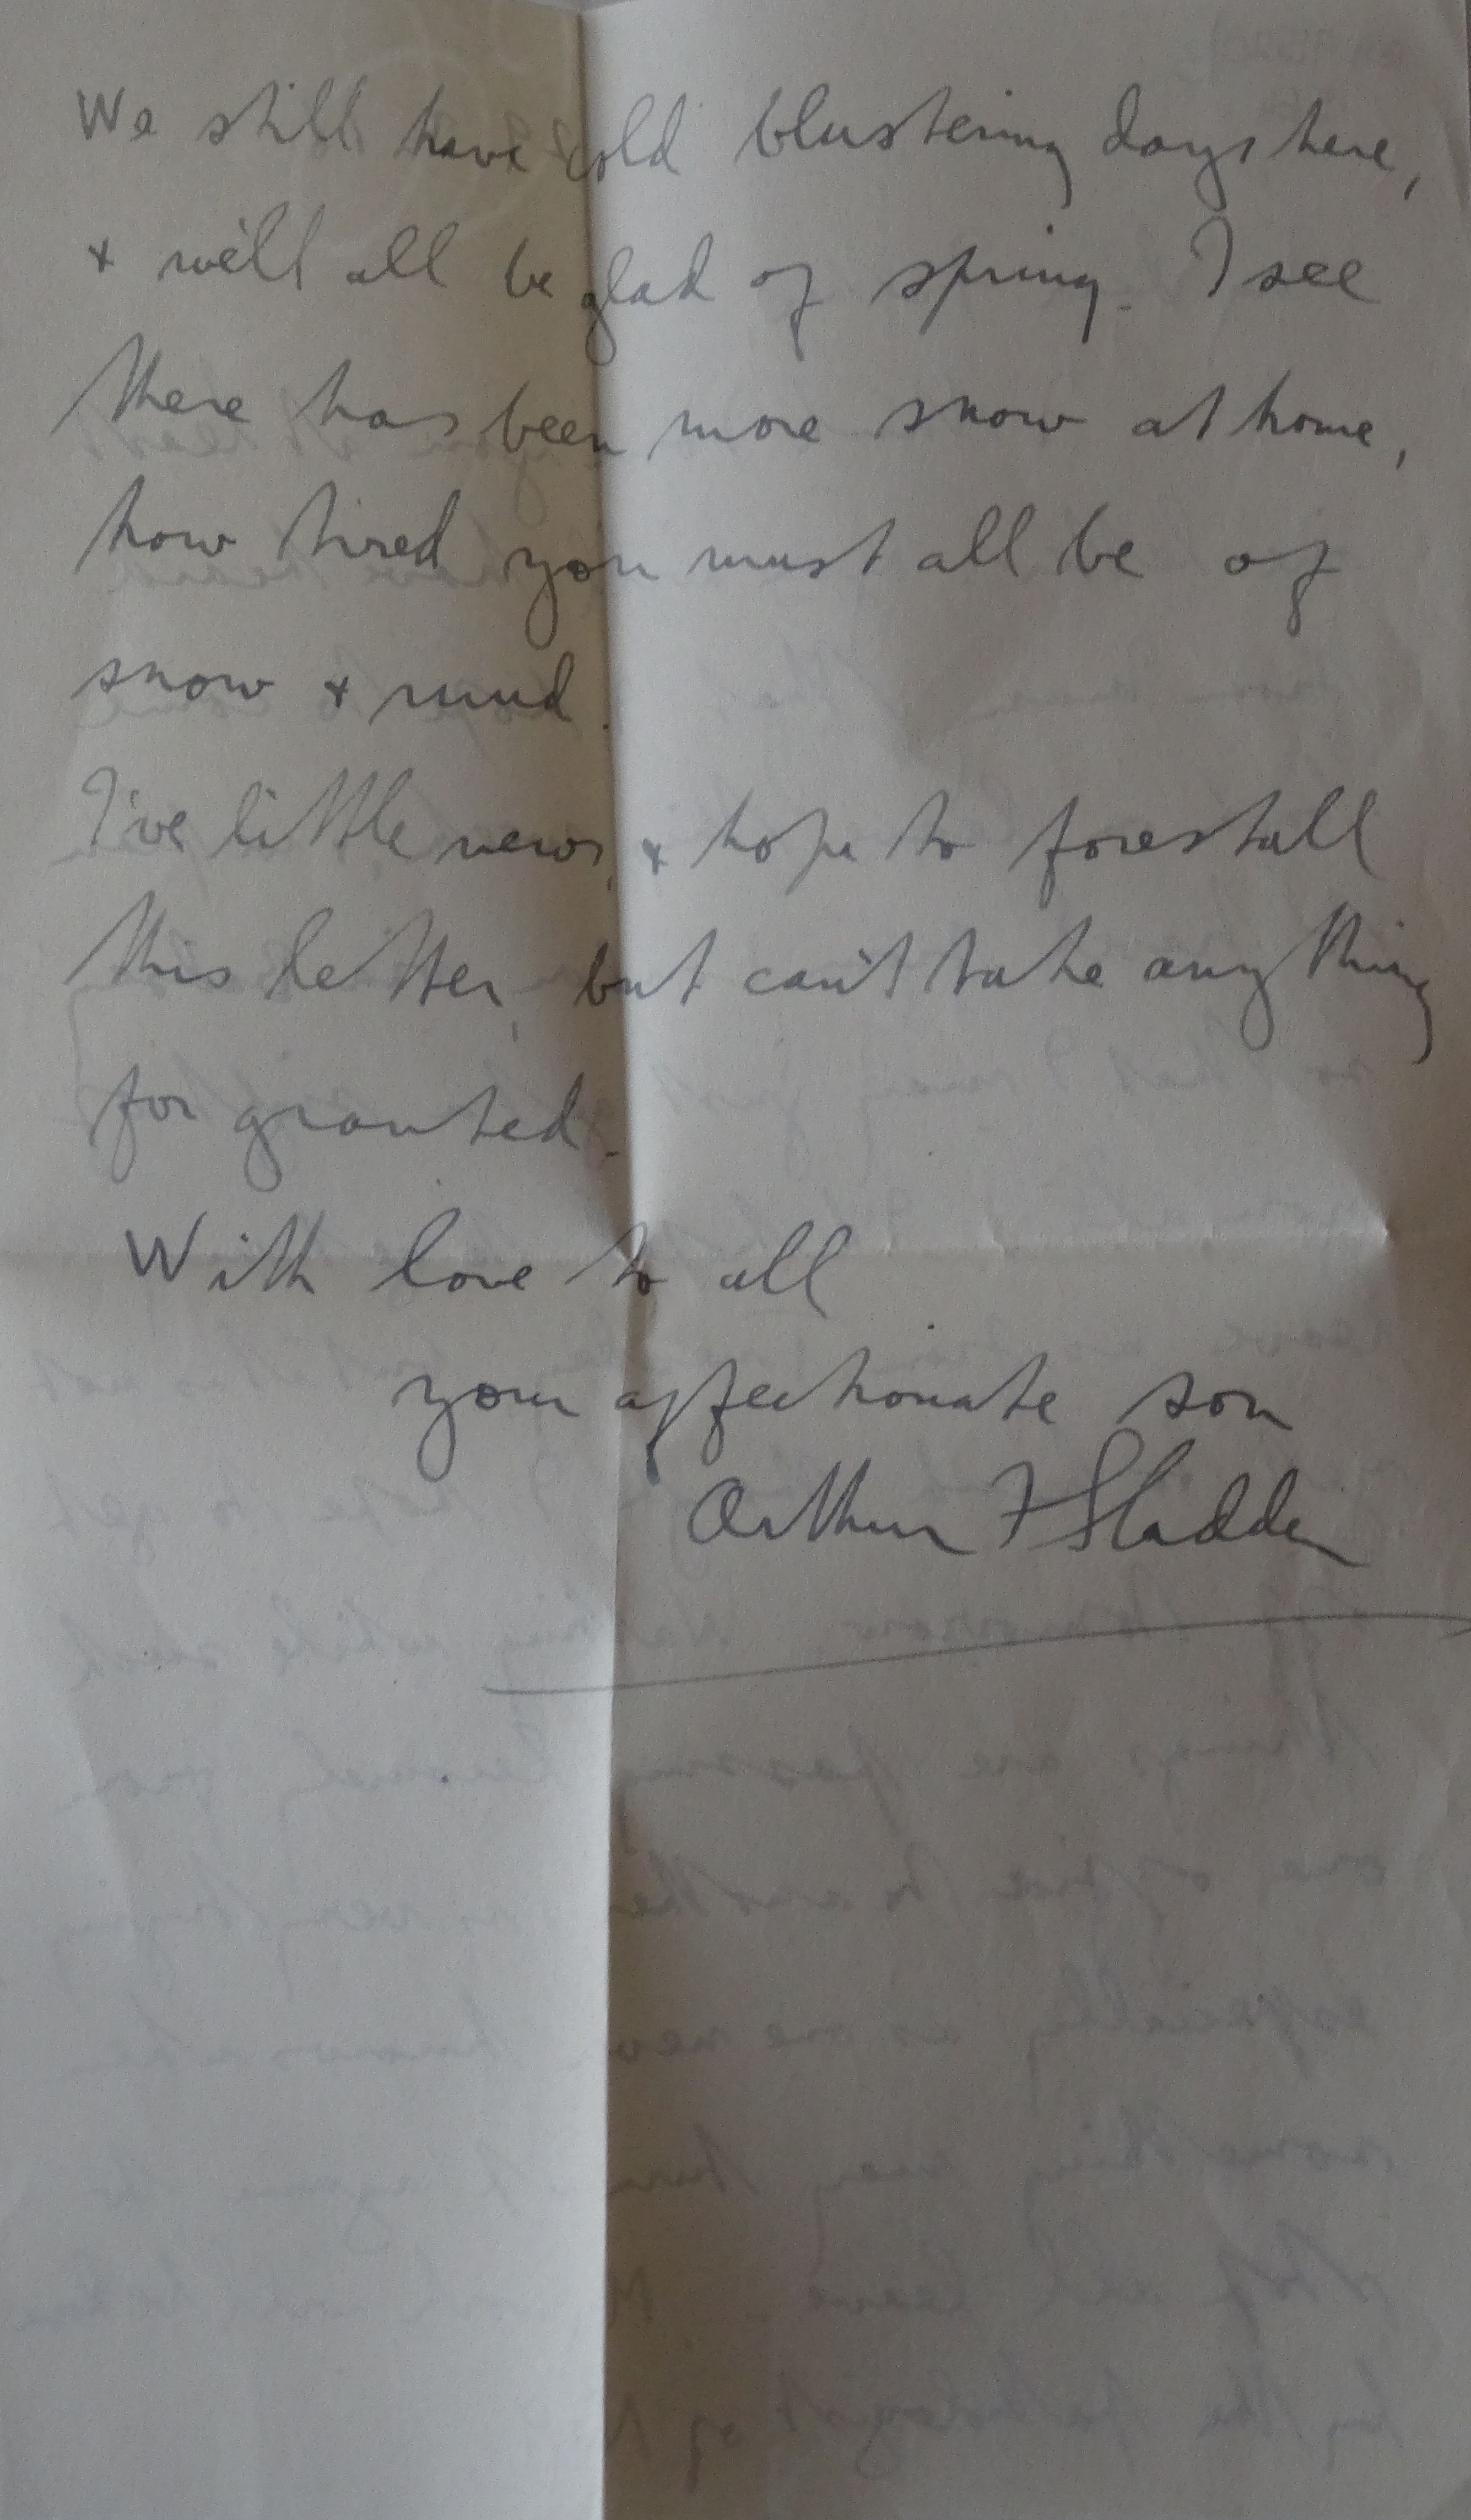 We still have cold blustering days here,
& we'll all be glad of spring. I see
there has been more snow at home,
how tired you must all be of
snow & mud.
I've little news, & hope to forestall
this letter, but can't take anything
for granted.
With love to all
your affectionate son
Arthur F Sladden